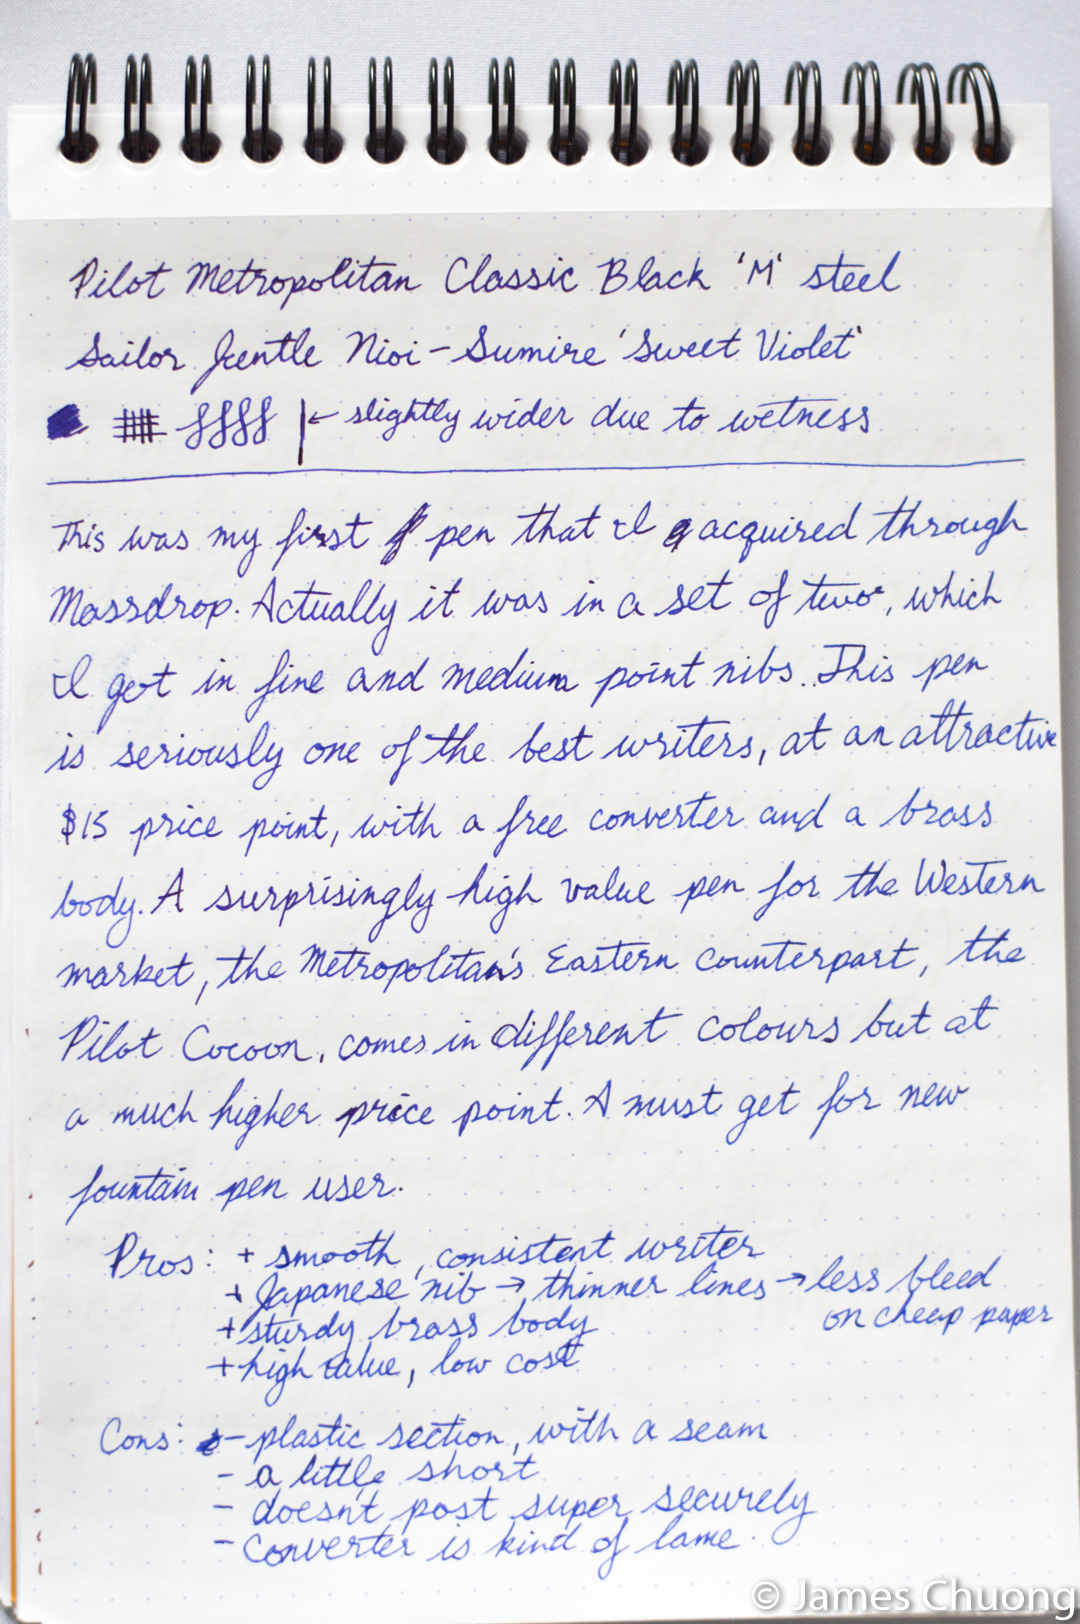 Pilot Metropolitan Classic Black 'M' steel
Sailor Jentle Nioi-Sumire 'Sweet Violet'
← slightly wider due to wetness
This was my first pen that I acquired through
Massdrop. Actually it was in a set of two, which
I got in fine and medium point nibs. This pen
is seriously one of the best writers, at an attractive
$15 price point, with a free converter and a brass
body. A surprisingly high value pen for the Western
market, the Metropolitan's Eastern counterpart, the
Pilot Cocoon, comes in different colours but at
a much higher price point. A must get for new
fountain pen user.
Pros: + smooth, consistent writer
+ Japanese nib → thinner lines → less bleed
on cheap paper
+ sturdy brass body
+ high value, low cost
Cons: - plastic section, with a seam
- a little short
- doesn't post super securely
- converter is kind of lame.
© James Chuong